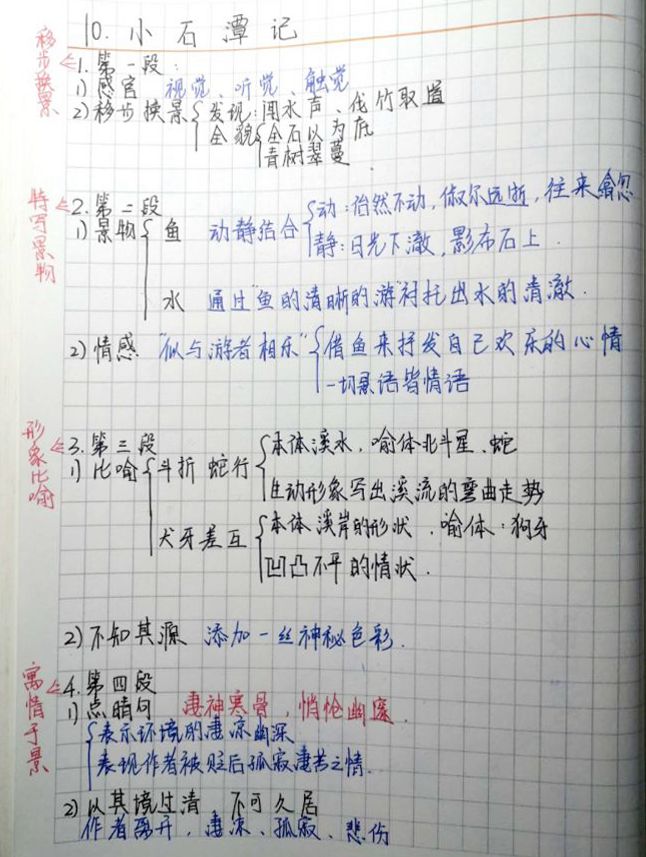 10. 小石潭记
移步换景
1. 第一段:
1) 感官 视觉、听觉、触觉
2) 移步换景 发现: 闻水声、伐竹取道
全貌 全石以为底
青树翠蔓
特写景物
2. 第二段
1) 景物 鱼 动静结合 动: 佁然不动, 俶尔远逝, 往来翕忽
静: 日光下澈, 影布石上.
水 通过“鱼的清晰的游”衬托出水的清澈.
2) 情感 “似与游者相乐” 借鱼来抒发自己欢乐的心情
一切景语皆情语
形象比喻
3. 第三段
1) 比喻 斗折蛇行 本体溪水, 喻体北斗星、蛇
生动形象写出溪流的弯曲走势
犬牙差互 本体溪岸的形状, 喻体: 狗牙
凹凸不平的情状.
2) 不知其源 添加一丝神秘色彩.
寓情于景
4. 第四段
1) 点睛句 凄神寒骨, 悄怆幽邃.
表示环境的凄凉幽深
表现作者被贬后孤寂凄苦之情.
2) 以其境过清, 不可久居
作者离开, 凄凉、孤寂、悲伤